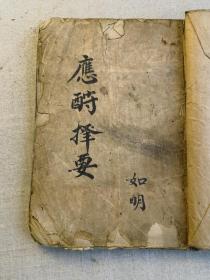 應酧擇要
如明